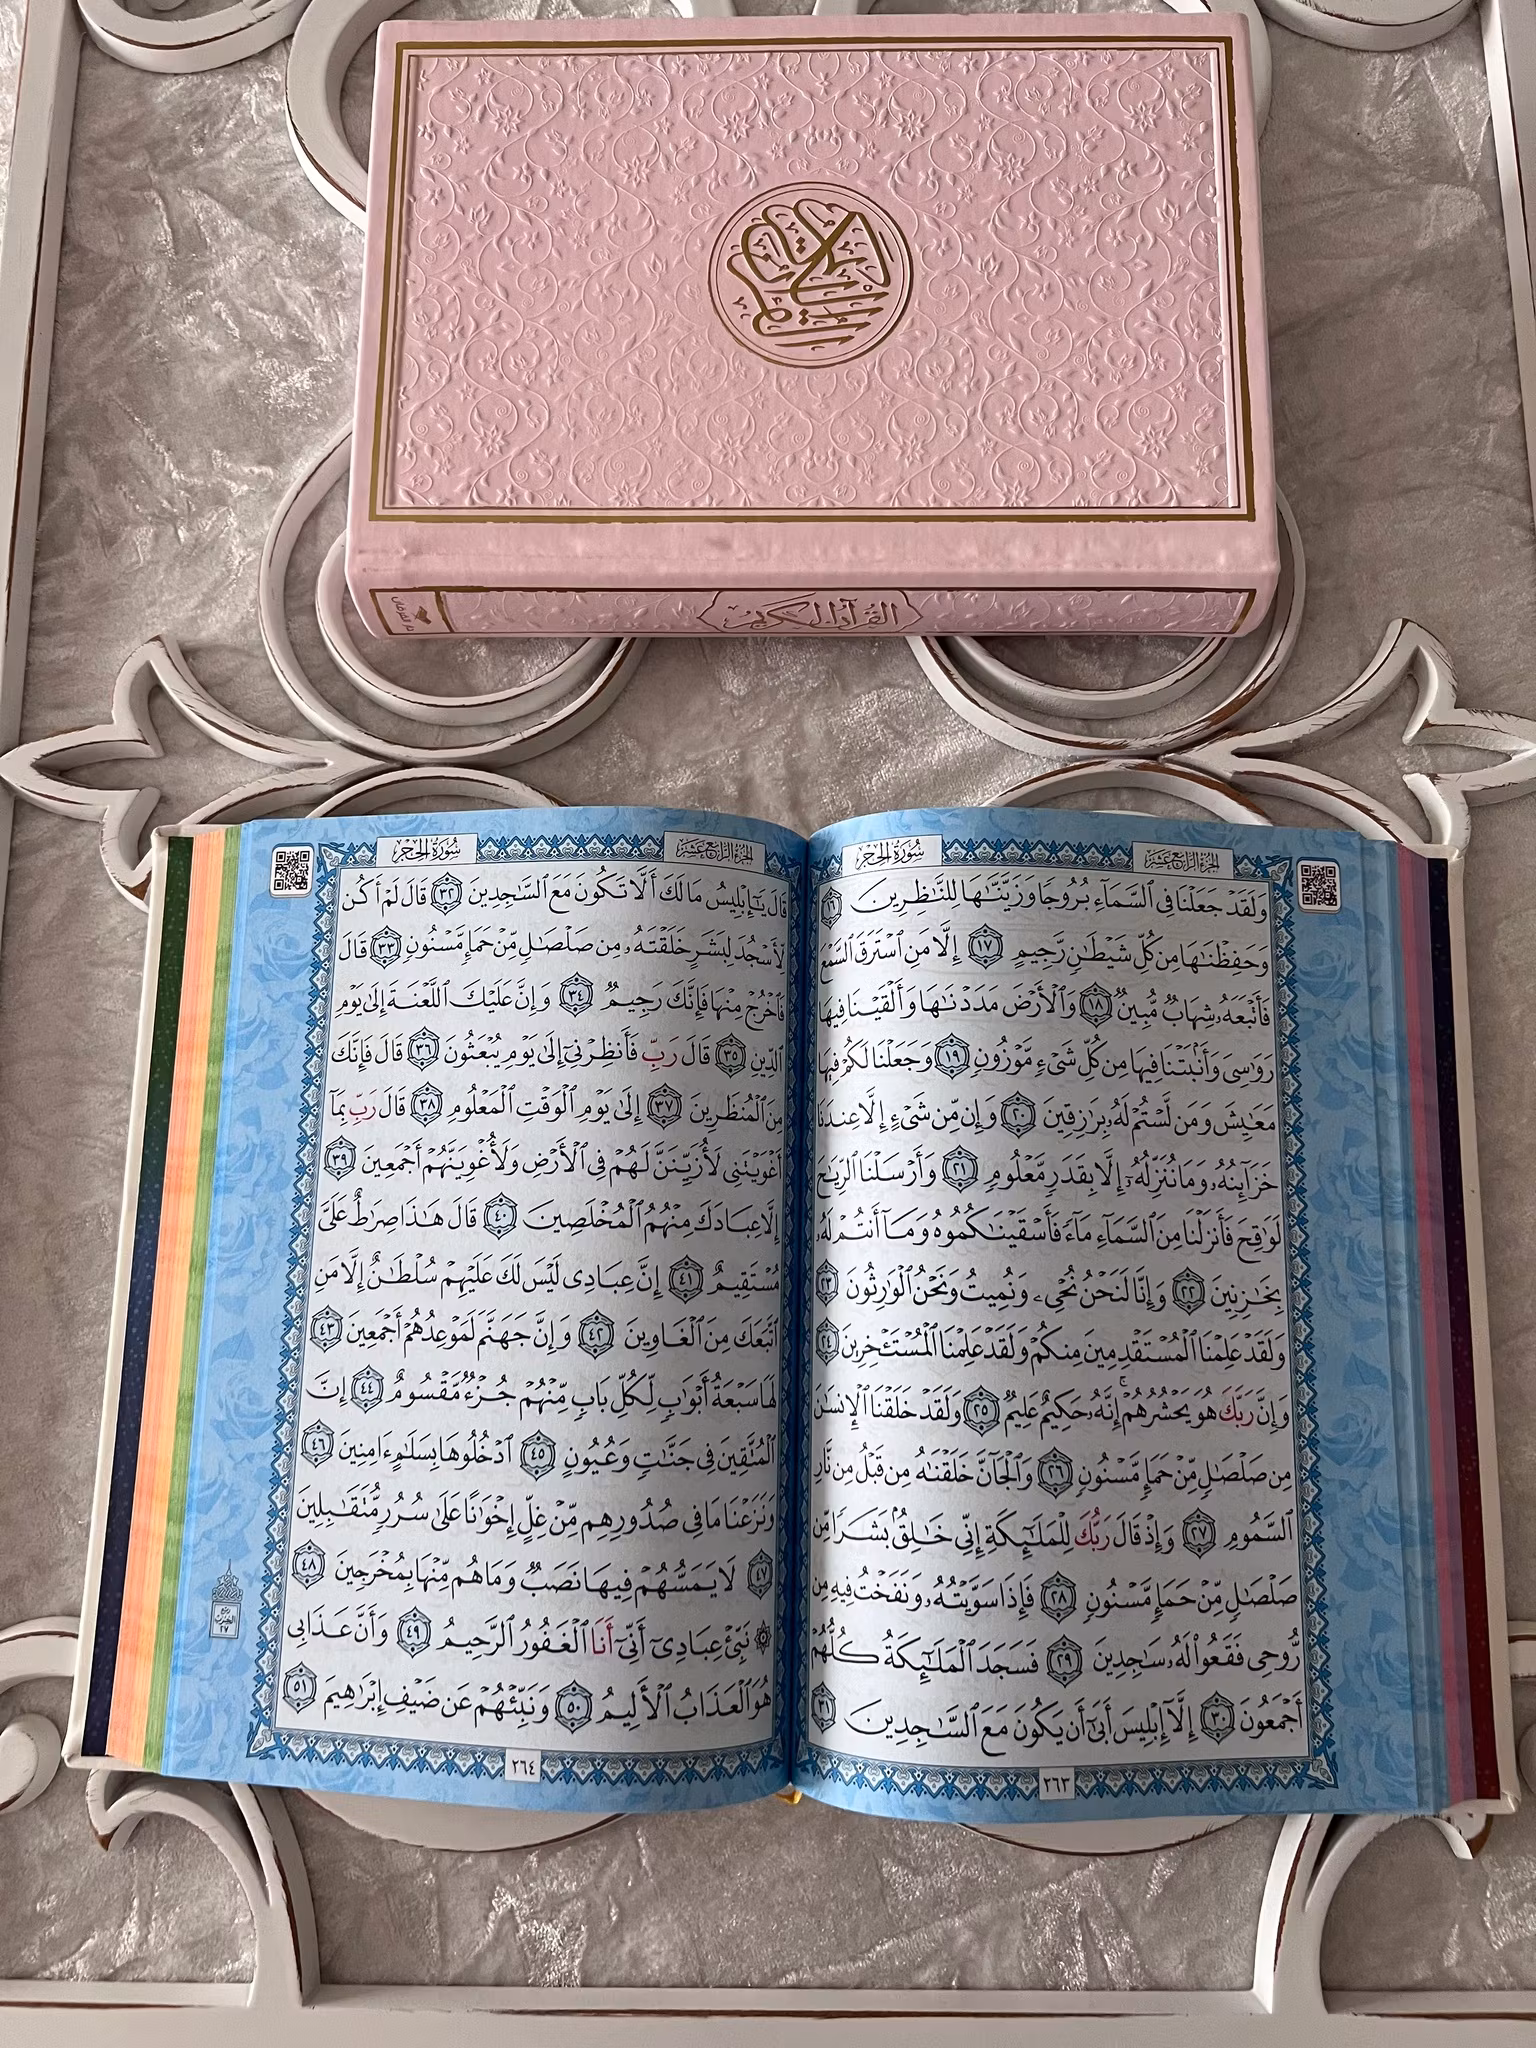 القرآن الكريم
القرآن الكريم
دار الفرقان
الجزء الرابع عشر
سورة الحجر
وَلَقَدْ جَعَلْنَا فِى ٱلسَّمَآءِ بُرُوجًا وَزَيَّنَّـٰهَا لِلنَّـٰظِرِينَ ١٦
وَحَفِظْنَـٰهَا مِن كُلِّ شَيْطَـٰنٍ رَّجِيمٍ ١٧ إِلَّا مَنِ ٱسْتَرَقَ ٱلسَّمْعَ
فَأَتْبَعَهُۥ شِهَابٌ مُّبِينٌ ١٨ وَٱلْأَرْضَ مَدَدْنَـٰهَا وَأَلْقَيْنَا فِيهَا
رَوَٰسِىَ وَأَنۢبَتْنَا فِيهَا مِن كُلِّ شَىْءٍ مَّوْزُونٍ ١٩ وَجَعَلْنَا لَكُمْ فِيهَا
مَعَـٰيِشَ وَمَن لَّسْتُمْ لَهُۥ بِرَٰزِقِينَ ٢٠ وَإِن مِّن شَىْءٍ إِلَّا عِندَنَا
خَزَآئِنُهُۥ وَمَا نُنَزِّلُهُۥٓ إِلَّا بِقَدَرٍ مَّعْلُومٍ ٢١ وَأَرْسَلْنَا ٱلرِّيَـٰحَ
لَوَٰقِحَ فَأَنزَلْنَا مِنَ ٱلسَّمَآءِ مَآءً فَأَسْقَيْنَـٰكُمُوهُ وَمَآ أَنتُمْ لَهُۥ
بِخَـٰزِنِينَ ٢٢ وَإِنَّا لَنَحْنُ نُحْىِۦ وَنُمِيتُ وَنَحْنُ ٱلْوَٰرِثُونَ ٢٣
وَلَقَدْ عَلِمْنَا ٱلْمُسْتَقْدِمِينَ مِنكُمْ وَلَقَدْ عَلِمْنَا ٱلْمُسْتَـْٔخِرِينَ ٢٤
وَإِنَّ رَبَّكَ هُوَ يَحْشُرُهُمْ ۚ إِنَّهُۥ حَكِيمٌ عَلِيمٌ ٢٥ وَلَقَدْ خَلَقْنَا ٱلْإِنسَـٰنَ
مِن صَلْصَـٰلٍ مِّنْ حَمَإٍ مَّسْنُونٍ ٢٦ وَٱلْجَآنَّ خَلَقْنَـٰهُ مِن قَبْلُ مِن نَّارِ
ٱلسَّمُومِ ٢٧ وَإِذْ قَالَ رَبُّكَ لِلْمَلَـٰٓئِكَةِ إِنِّى خَـٰلِقٌۢ بَشَرًا مِّن
صَلْصَـٰلٍ مِّنْ حَمَإٍ مَّسْنُونٍ ٢٨ فَإِذَا سَوَّيْتُهُۥ وَنَفَخْتُ فِيهِ مِن
رُّوحِى فَقَعُوا۟ لَهُۥ سَـٰجِدِينَ ٢٩ فَسَجَدَ ٱلْمَلَـٰٓئِكَةُ كُلُّهُمْ
أَجْمَعُونَ ٣٠ إِلَّآ إِبْلِيسَ أَبَىٰٓ أَن يَكُونَ مَعَ ٱلسَّـٰجِدِينَ ٣١
٢٦٣
الجزء الرابع عشر
سورة الحجر
قَالَ يَـٰٓإِبْلِيسُ مَا لَكَ أَلَّا تَكُونَ مَعَ ٱلسَّـٰجِدِينَ ٣٢ قَالَ لَمْ أَكُن
لِّأَسْجُدَ لِبَشَرٍ خَلَقْتَهُۥ مِن صَلْصَـٰلٍ مِّنْ حَمَإٍ مَّسْنُونٍ ٣٣ قَالَ
فَٱخْرُجْ مِنْهَا فَإِنَّكَ رَجِيمٌ ٣٤ وَإِنَّ عَلَيْكَ ٱللَّعْنَةَ إِلَىٰ يَوْمِ
ٱلدِّينِ ٣٥ قَالَ رَبِّ فَأَنظِرْنِىٓ إِلَىٰ يَوْمِ يُبْعَثُونَ ٣٦ قَالَ فَإِنَّكَ
مِنَ ٱلْمُنظَرِينَ ٣٧ إِلَىٰ يَوْمِ ٱلْوَقْتِ ٱلْمَعْلُومِ ٣٨ قَالَ رَبِّ بِمَآ
أَغْوَيْتَنِى لَأُزَيِّنَنَّ لَهُمْ فِى ٱلْأَرْضِ وَلَأُغْوِيَنَّهُمْ أَجْمَعِينَ ٣٩
إِلَّا عِبَادَكَ مِنْهُمُ ٱلْمُخْلَصِينَ ٤٠ قَالَ هَـٰذَا صِرَٰطٌ عَلَىَّ
مُسْتَقِيمٌ ٤١ إِنَّ عِبَادِى لَيْسَ لَكَ عَلَيْهِمْ سُلْطَـٰنٌ إِلَّا مَنِ
ٱتَّبَعَكَ مِنَ ٱلْغَاوِينَ ٤٢ وَإِنَّ جَهَنَّمَ لَمَوْعِدُهُمْ أَجْمَعِينَ ٤٣
لَهَا سَبْعَةُ أَبْوَٰبٍ لِّكُلِّ بَابٍ مِّنْهُمْ جُزْءٌ مَّقْسُومٌ ٤٤ إِنَّ
ٱلْمُتَّقِينَ فِى جَنَّـٰتٍ وَعُيُونٍ ٤٥ ٱدْخُلُوهَا بِسَلَـٰمٍ ءَامِنِينَ ٤٦
وَنَزَعْنَا مَا فِى صُدُورِهِم مِّنْ غِلٍّ إِخْوَٰنًا عَلَىٰ سُرُرٍ مُّتَقَـٰبِلِينَ
٤٧ لَا يَمَسُّهُمْ فِيهَا نَصَبٌ وَمَا هُم مِّنْهَا بِمُخْرَجِينَ ٤٨
۞ نَبِّئْ عِبَادِىٓ أَنِّىٓ أَنَا ٱلْغَفُورُ ٱلرَّحِيمُ ٤٩ وَأَنَّ عَذَابِى
هُوَ ٱلْعَذَابُ ٱلْأَلِيمُ ٥٠ وَنَبِّئْهُمْ عَن ضَيْفِ إِبْرَٰهِيمَ ٥١
ربع
الحزب
٢٧
٢٦٤